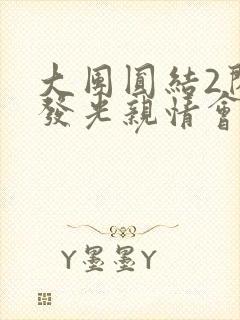 大團圓結2
發光親情會
Y墨墨Y